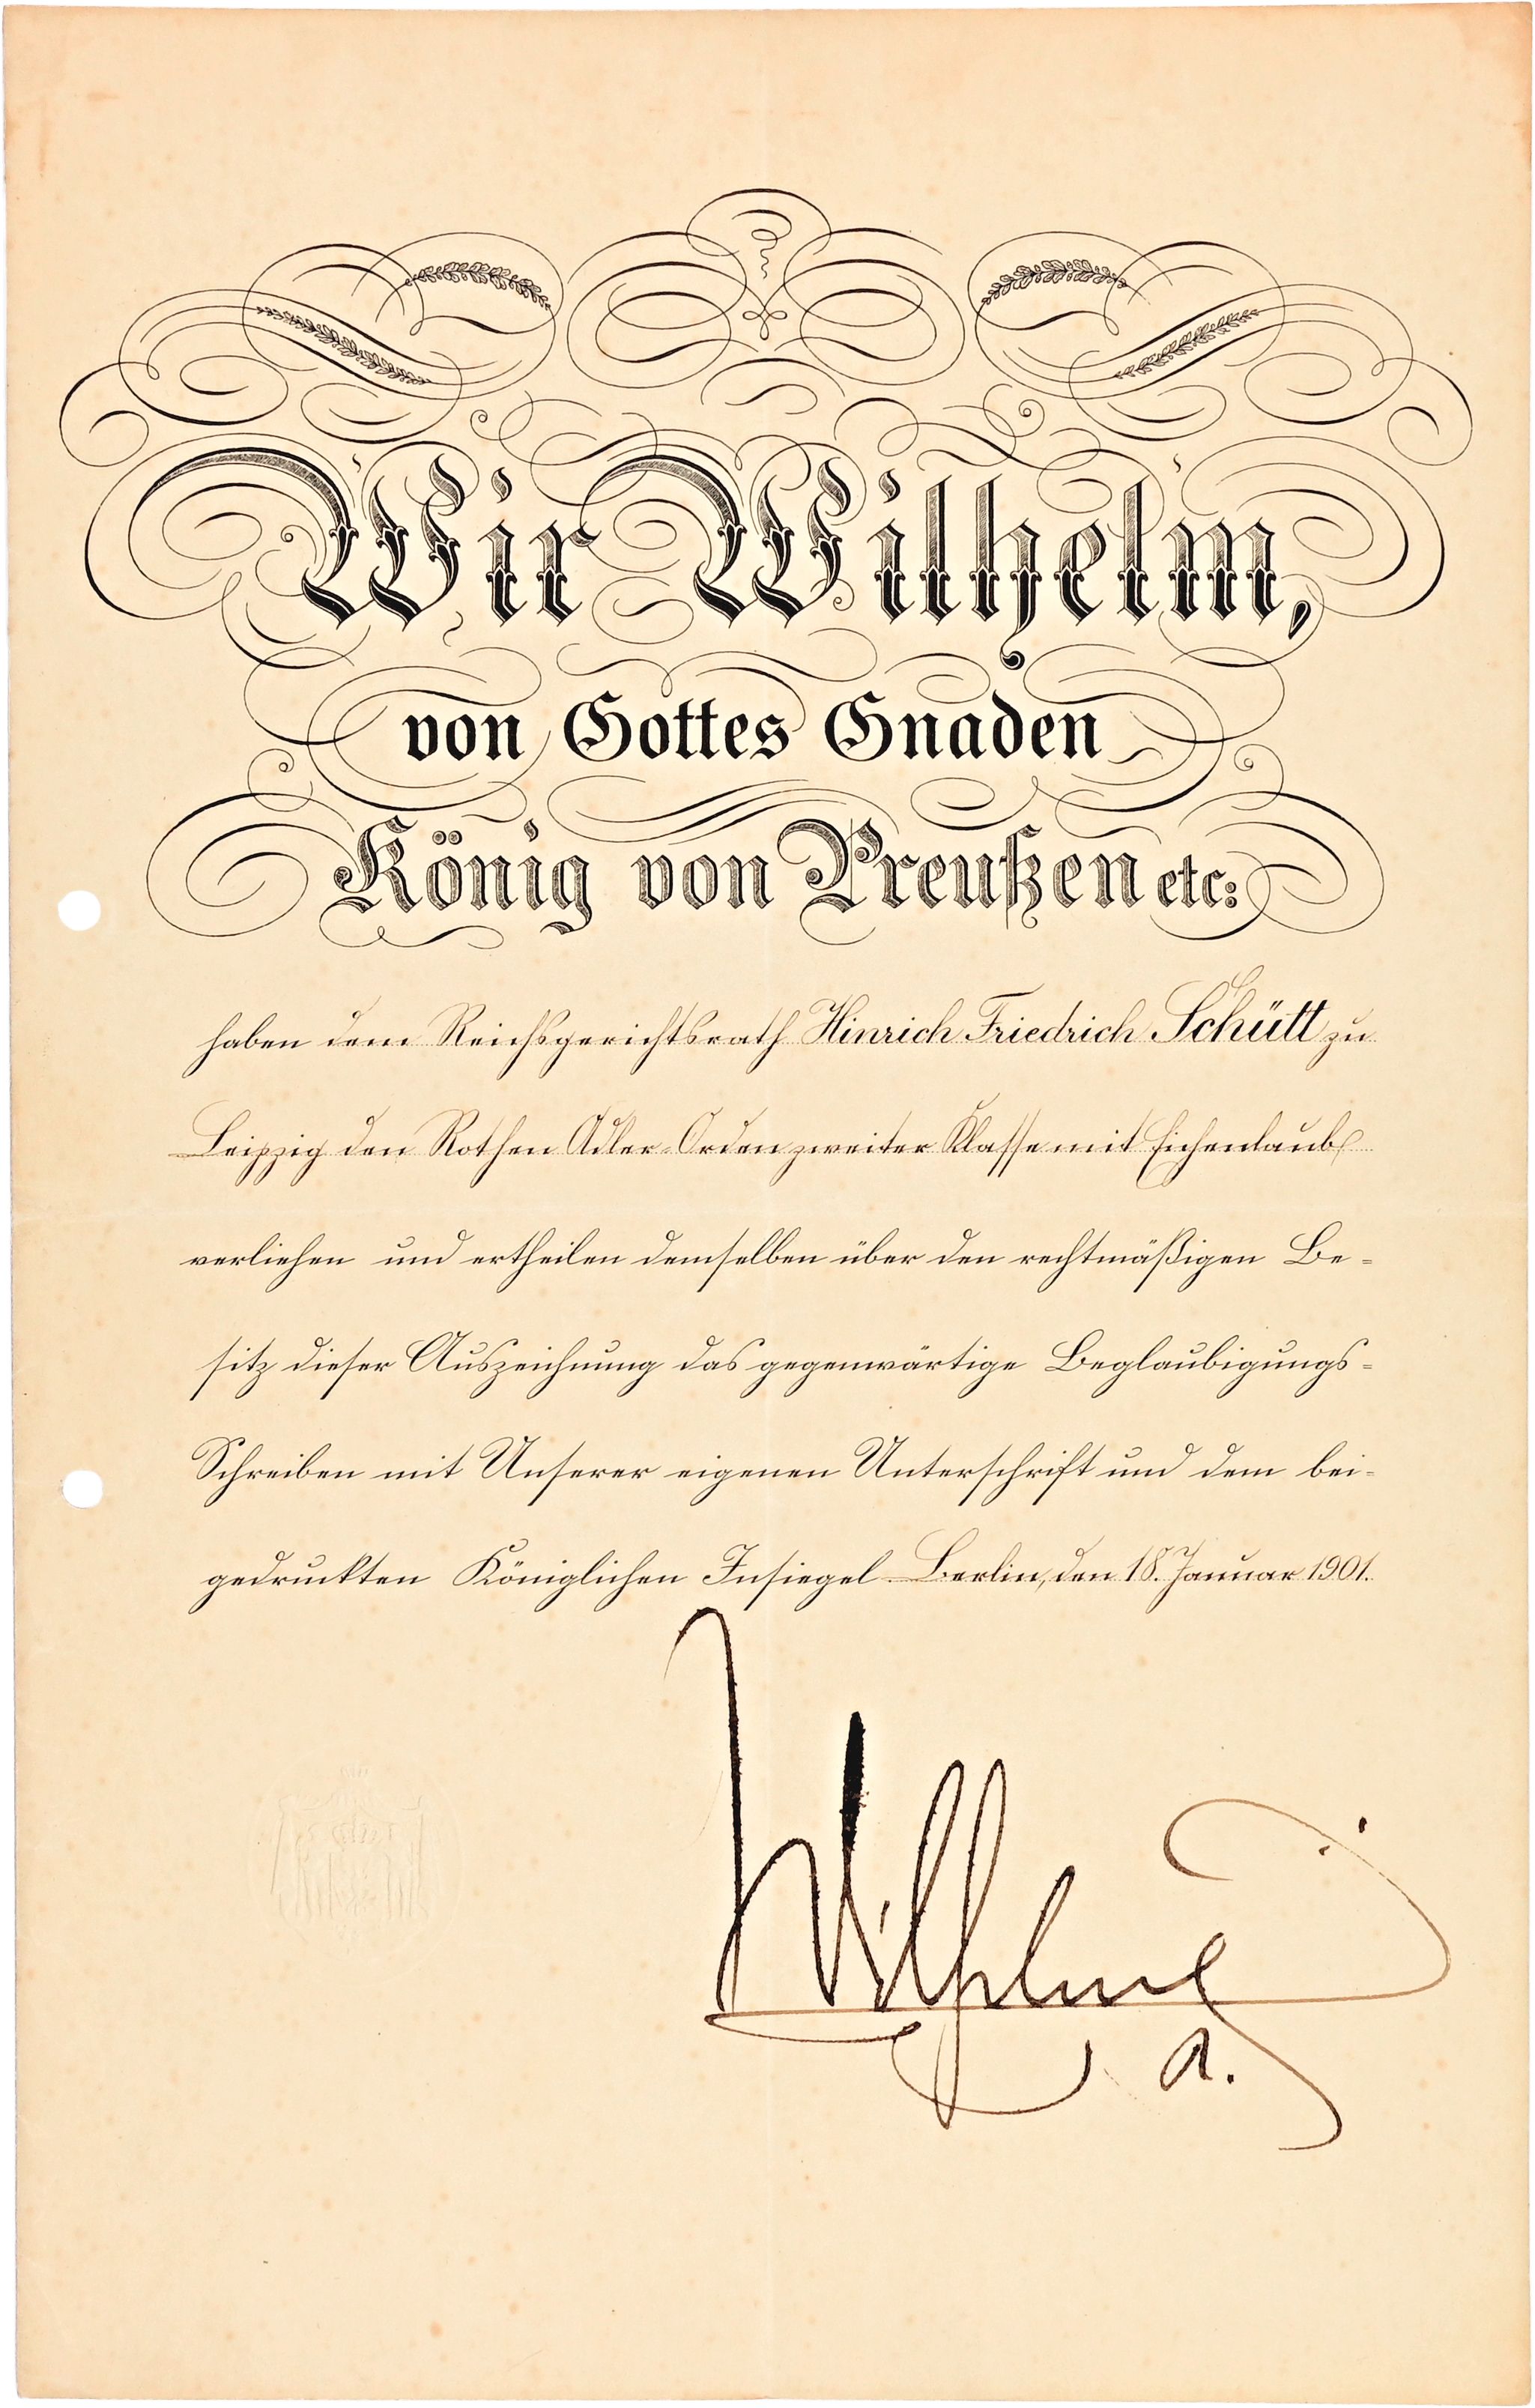 Wir Wilhelm,
von Gottes Gnaden
König von Preußen etc:
haben dem Reichsgerichtsrath Hinrich Friedrich Schütt zu
Leipzig den Rothen Adler-Orden zweiter Klasse mit Eichenlaub
verliehen und ertheilen demselben über den rechtmäßigen Be-
sitz dieser Auszeichnung das gegenwärtige Beglaubigungs-
Schreiben mit Unserer eigenen Unterschrift und dem bei-
gedruckten Königlichen Insiegel Berlin, den 18. Januar 1901.
Wilhelm
R.